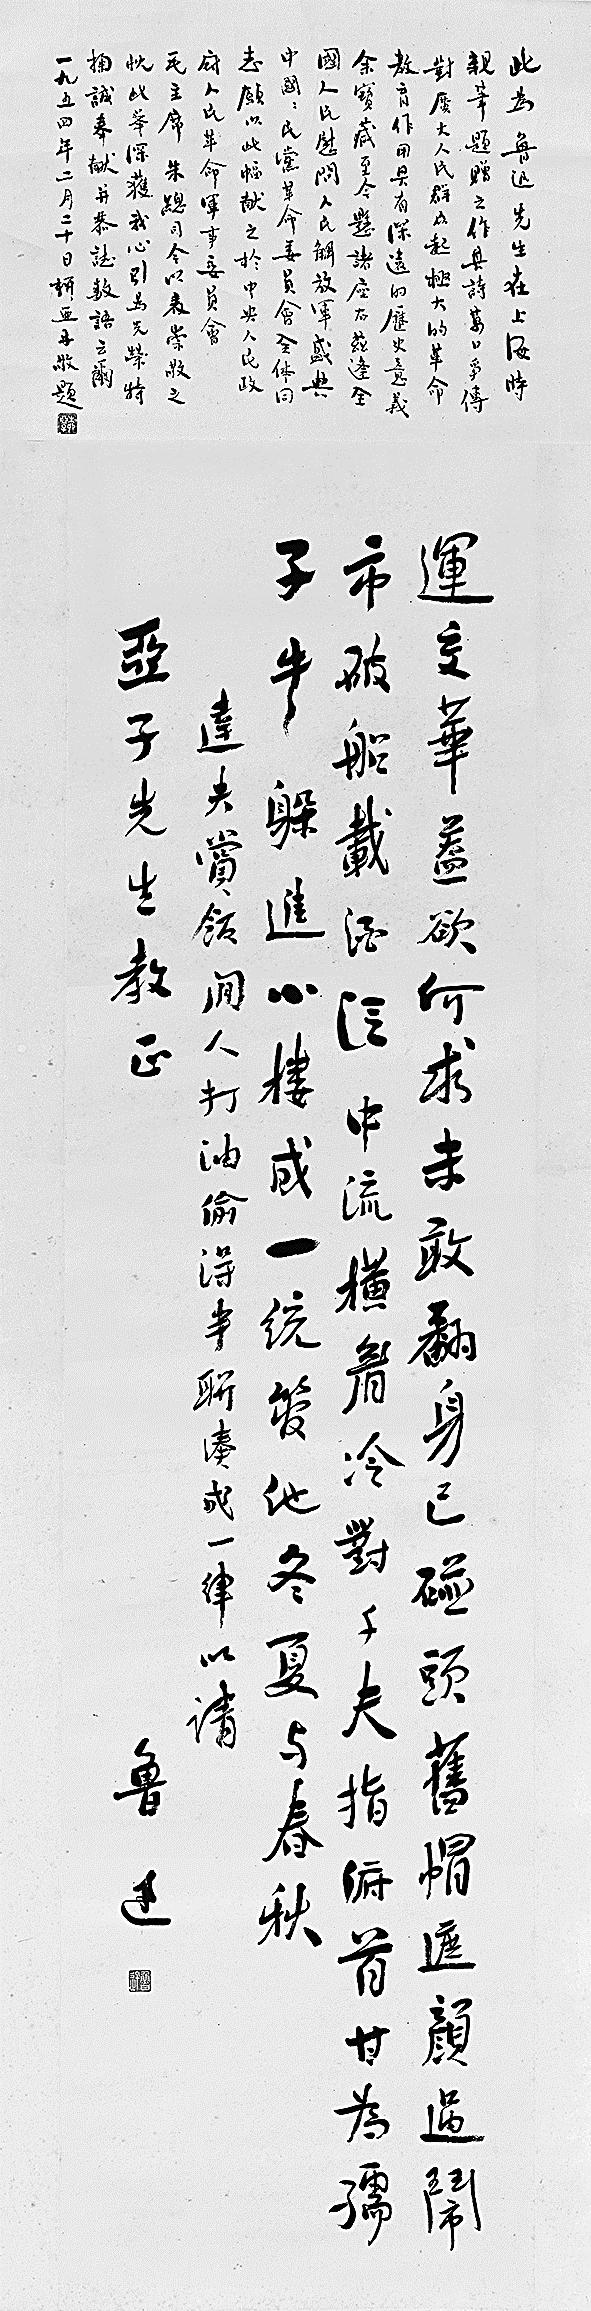 此為魯迅先生在上海時
親筆題贈之作其詩萬口爭傳
對廣大人民群众起極大的革命
教育作用具有深遠的歷史意義
余寶藏至今懸諸座右茲逢全
國人民慰問人民解放軍盛典
中國〻民黨革命委員會全体同
志願以此幅献之於中央人民政
府人民革命軍事委員會
毛主席 朱總司令以表崇敬之
忱此舉深獲我心引為光榮特
掬誠奉献并恭誌數語云爾
一九五四年二月二十日柳亞子敬題
運交華蓋欲何求未敢翻身已碰頭舊帽遮顏過鬧
市破船載酒泛中流橫眉冷對千夫指俯首甘為孺
子牛躲進小樓成一統管他冬夏与春秋
達夫賞飯閒人打油偷得半聯湊成一律以請
亞子先生教正
魯迅